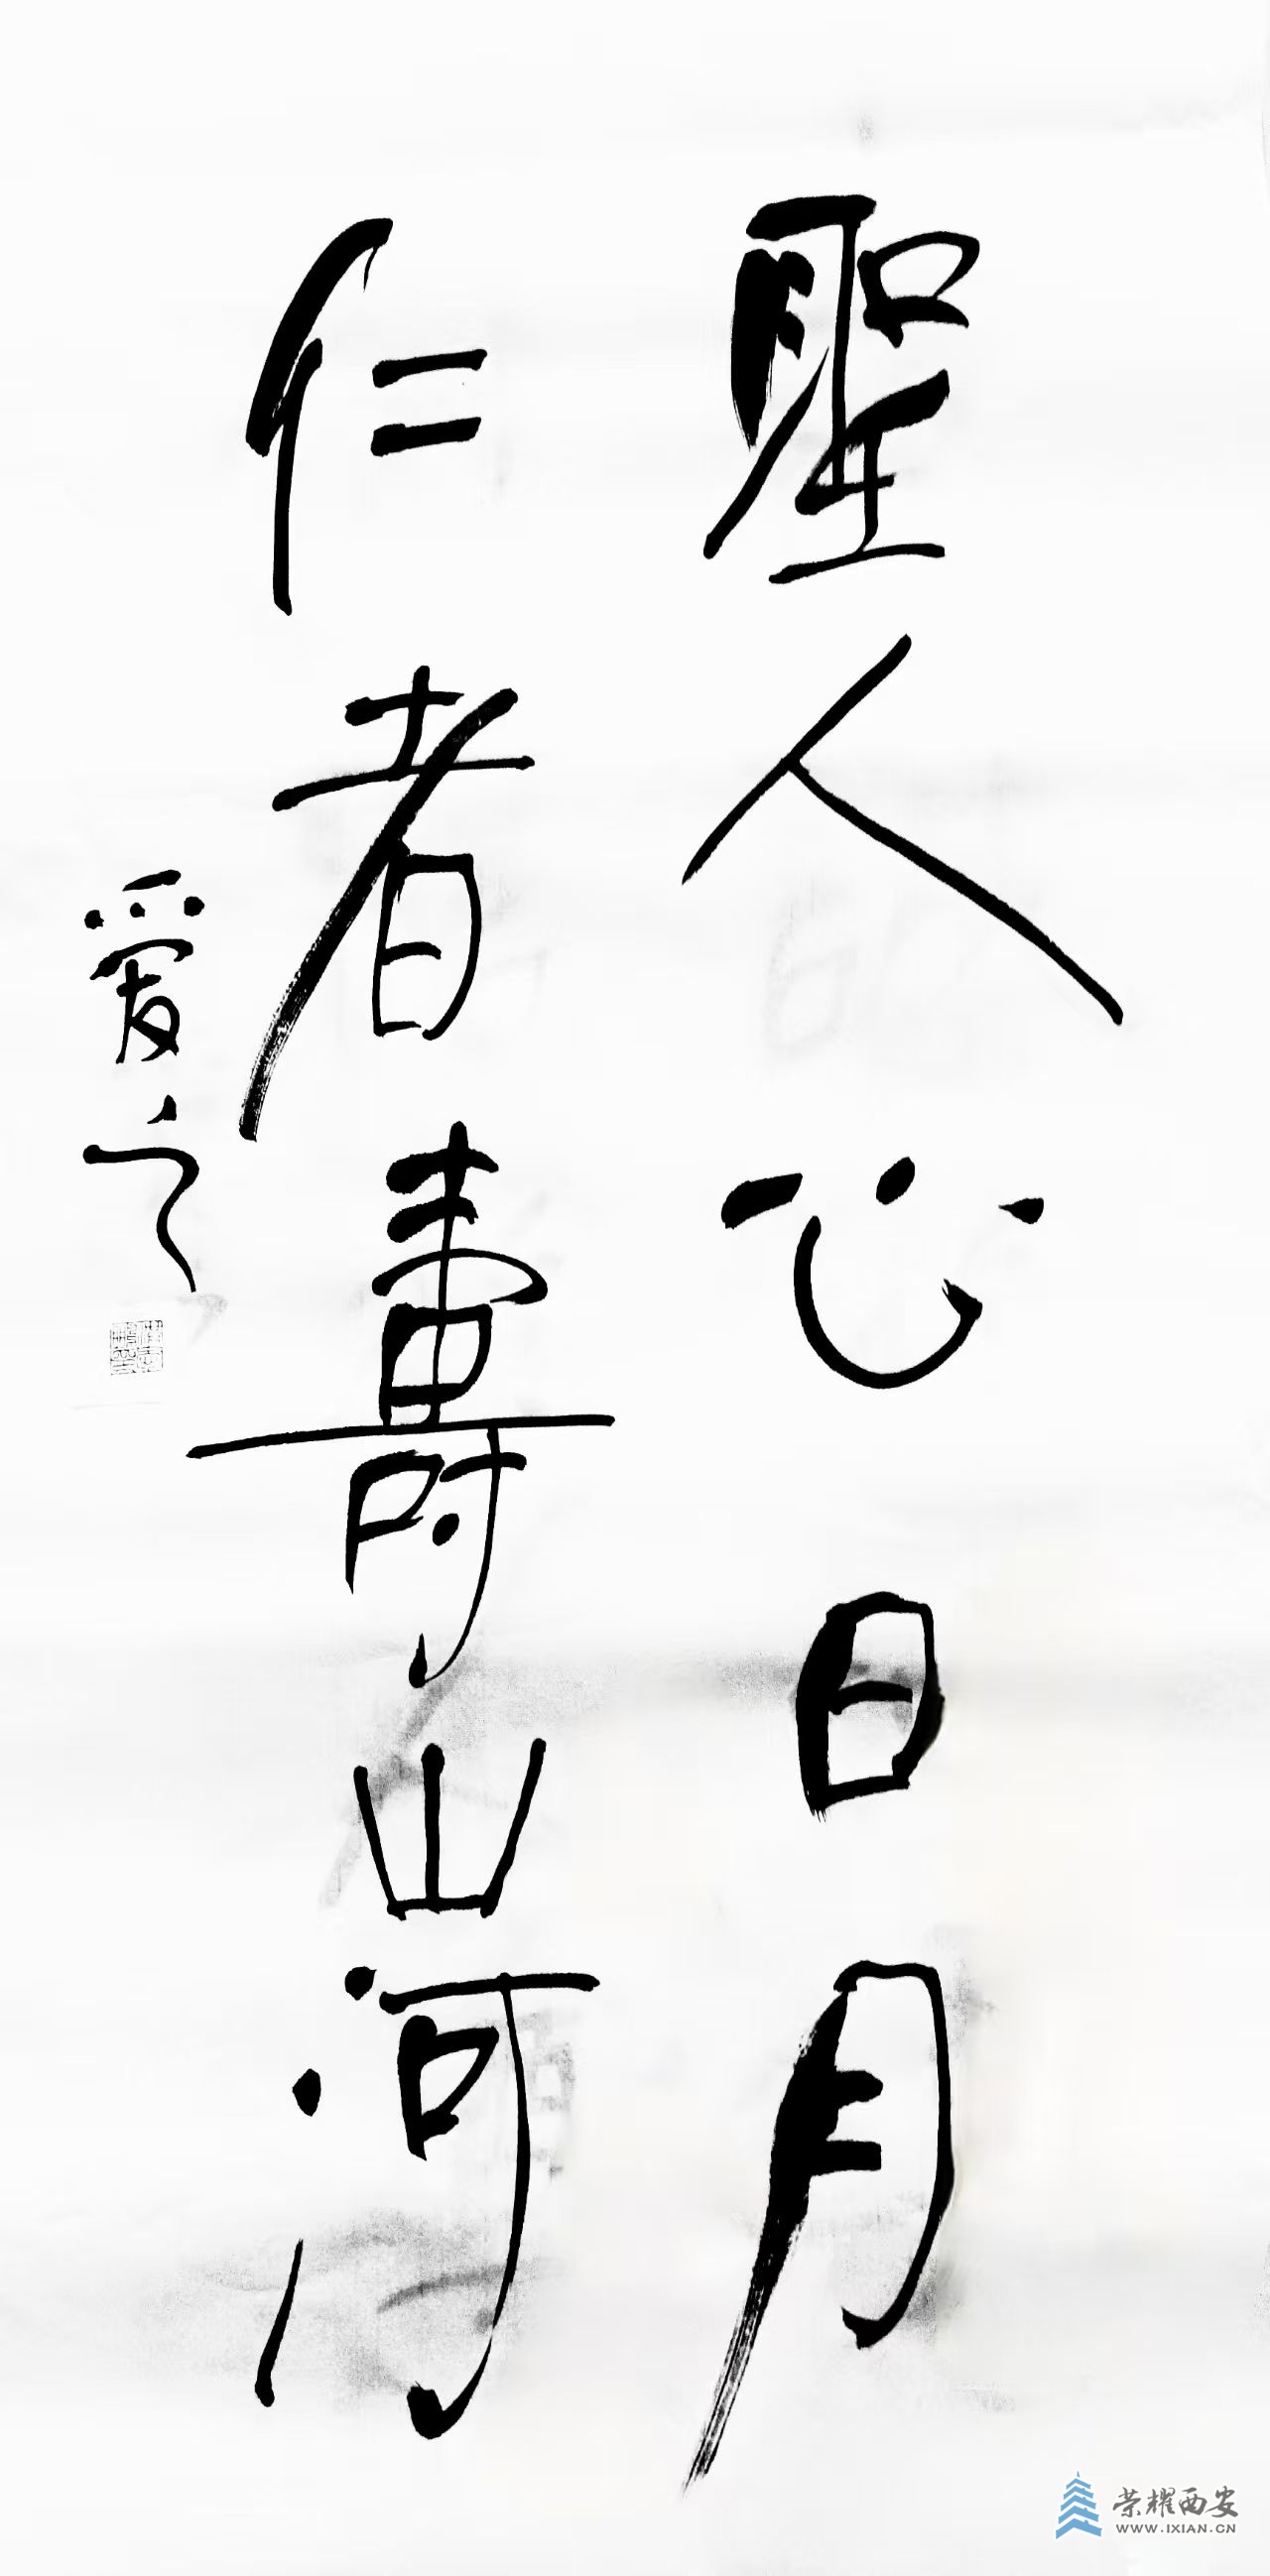 聖人心日月
仁者壽山河
爱之
荣耀西安
WWW.IXIAN.CN